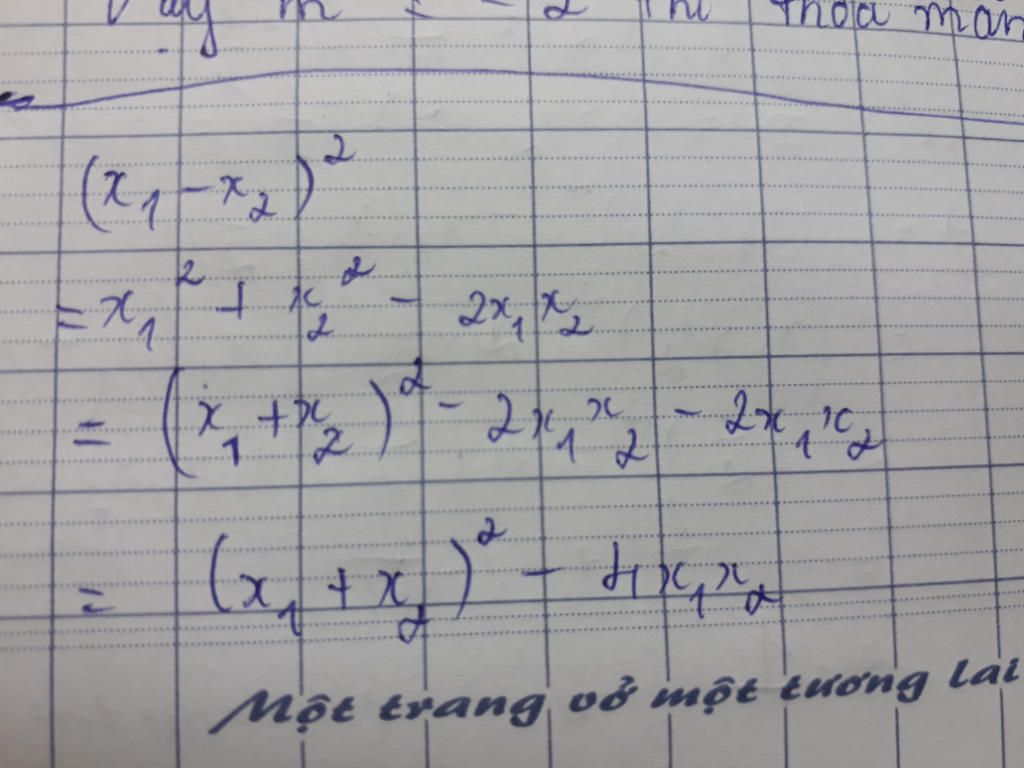 Vậy m = -2 thì thỏa mãn
(x₁ - x₂)²
= x₁² + x₂² - 2x₁x₂
= (x₁ + x₂)² - 2x₁x₂ - 2x₁x₂
= (x₁ + x₂)² - 4x₁x₂
Một trang vở một tương lai